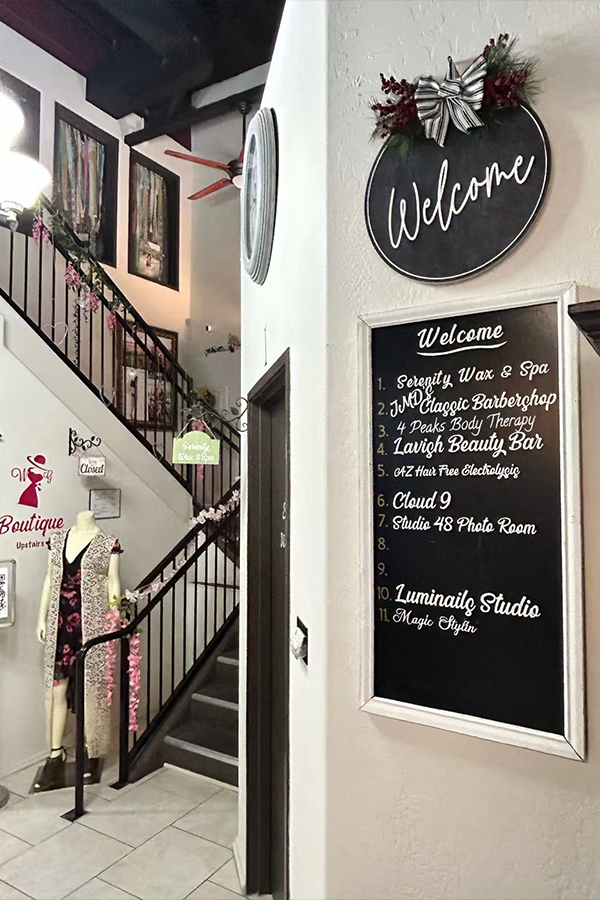 Welcome
Welcome
1. Serenity Wax & Spa
2. JMD's Classic Barbershop
3. 4 Peaks Body Therapy
4. Lavish Beauty Bar
5. AZ Hair Free Electrolysis
6. Cloud 9
7. Studio 48 Photo Room
8.
9.
10. Luminails Studio
11. Magic Stylin
Serenity
Wax & Spa
Closed
W G
Boutique
Upstairs